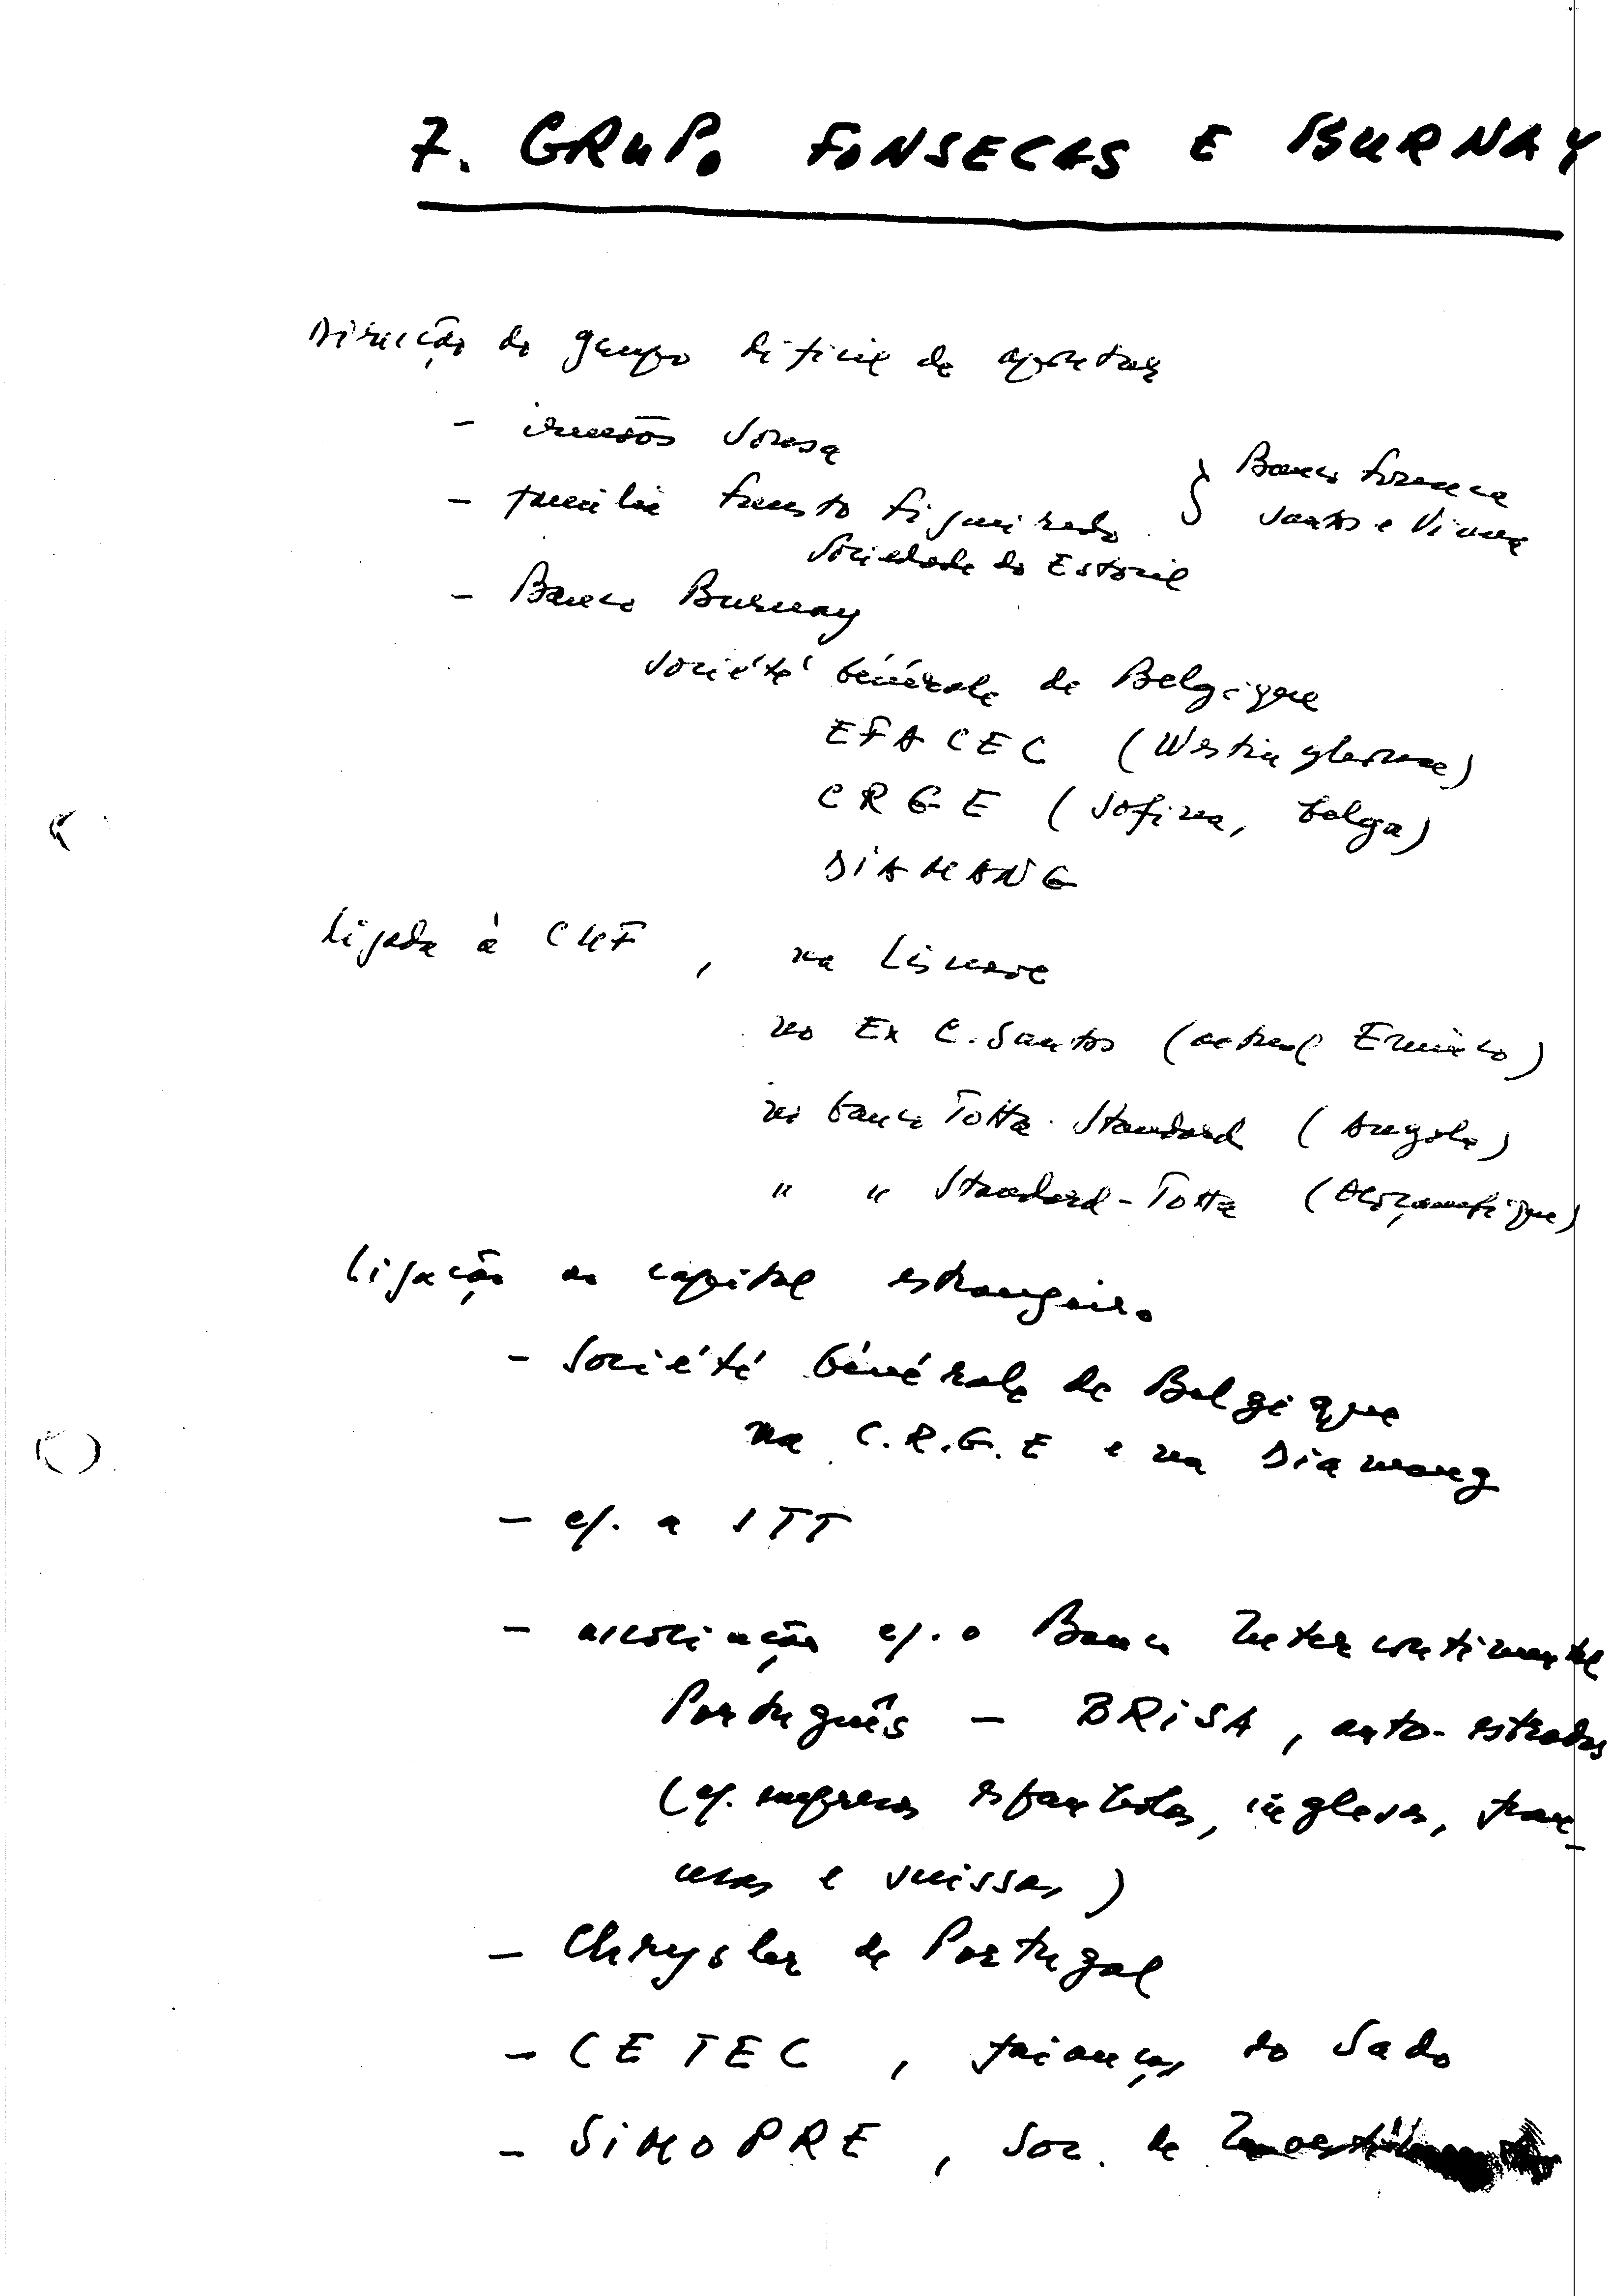 7. GRUPO FONSECAS E BURNAY
Direcção do grupo difícil de apontar
- irmãos Sousa
- família Fausto Figueiredo } Banco Fonseca
Santos e Viana
Sociedade do Estoril
- Banco Burnay
Société Générale de Belgique
EFACEC (Westinghouse)
CRGE (Sofina, belga)
DIAMANG
Ligada à CUF, na Lisnave
no Ex C. Santos (actual Emínco)
no banco Totta-Standard (Angola)
" " Standard-Totta (Moçambique)
Ligação ao capital estrangeiro
- Société Générale de Belgique
na C.R.G.E e na Diamang
- c/. a ITT
- associação c/. o Banco Intercontinental
Português - BRISA, auto-estradas
(c/. empresas espanholas, inglesas, fran-
cesas e suissas)
- Chrysler de Portugal
- CETEC, faianças do Sado
- SIMOPRE, Soc. de